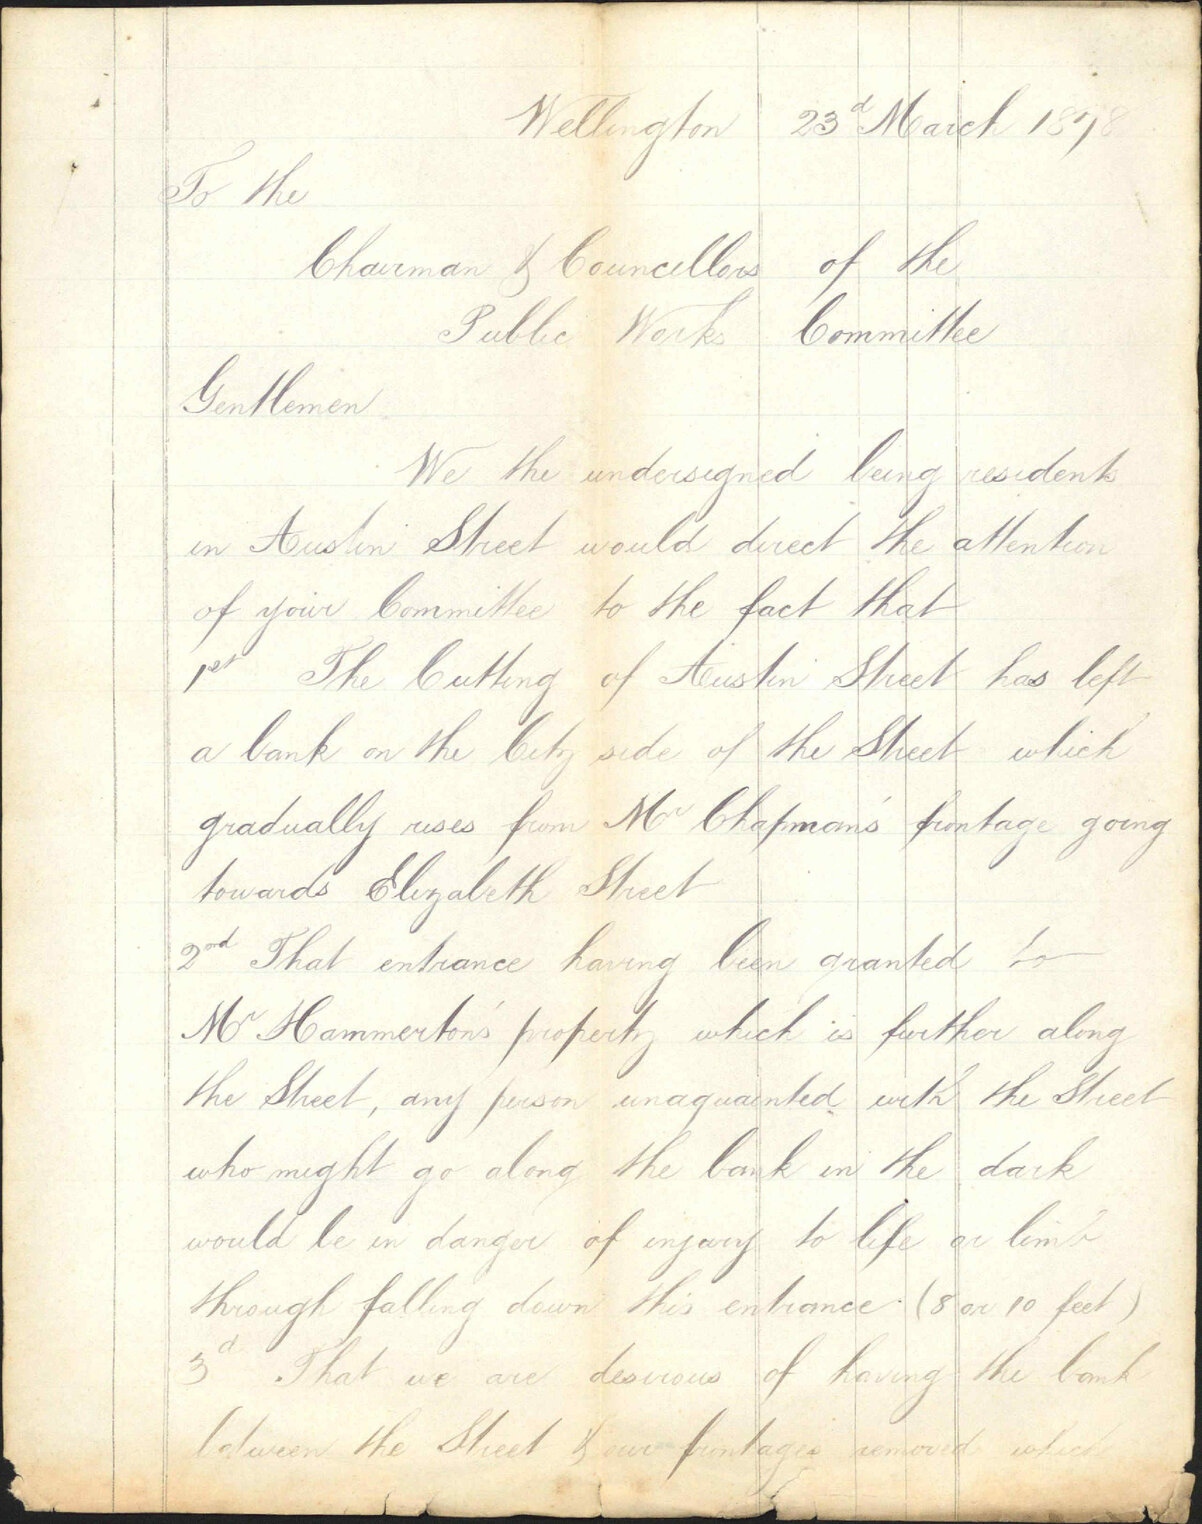 Wellington 23d March 1878
To the
Chairman & Councillors of the
Public Works Committee
Gentlemen
We the undersigned being residents
in Austin Street would direct the attention
of your Committee to the fact that
1st The Cutting of Austin Street has left
a bank on the City side of the Street which
gradually rises from Mr Chapman's frontage going
towards Elizabeth Street
2nd That entrance having been granted to
Mr Hammerton's property which is further along
the Street, any person unaquainted with the Street
who might go along the bank in the dark
would be in danger of injury to life or limb
through falling down this entrance (8 or 10 feet)
3d That we are desirous of having the bank
between the Street & our frontages removed which